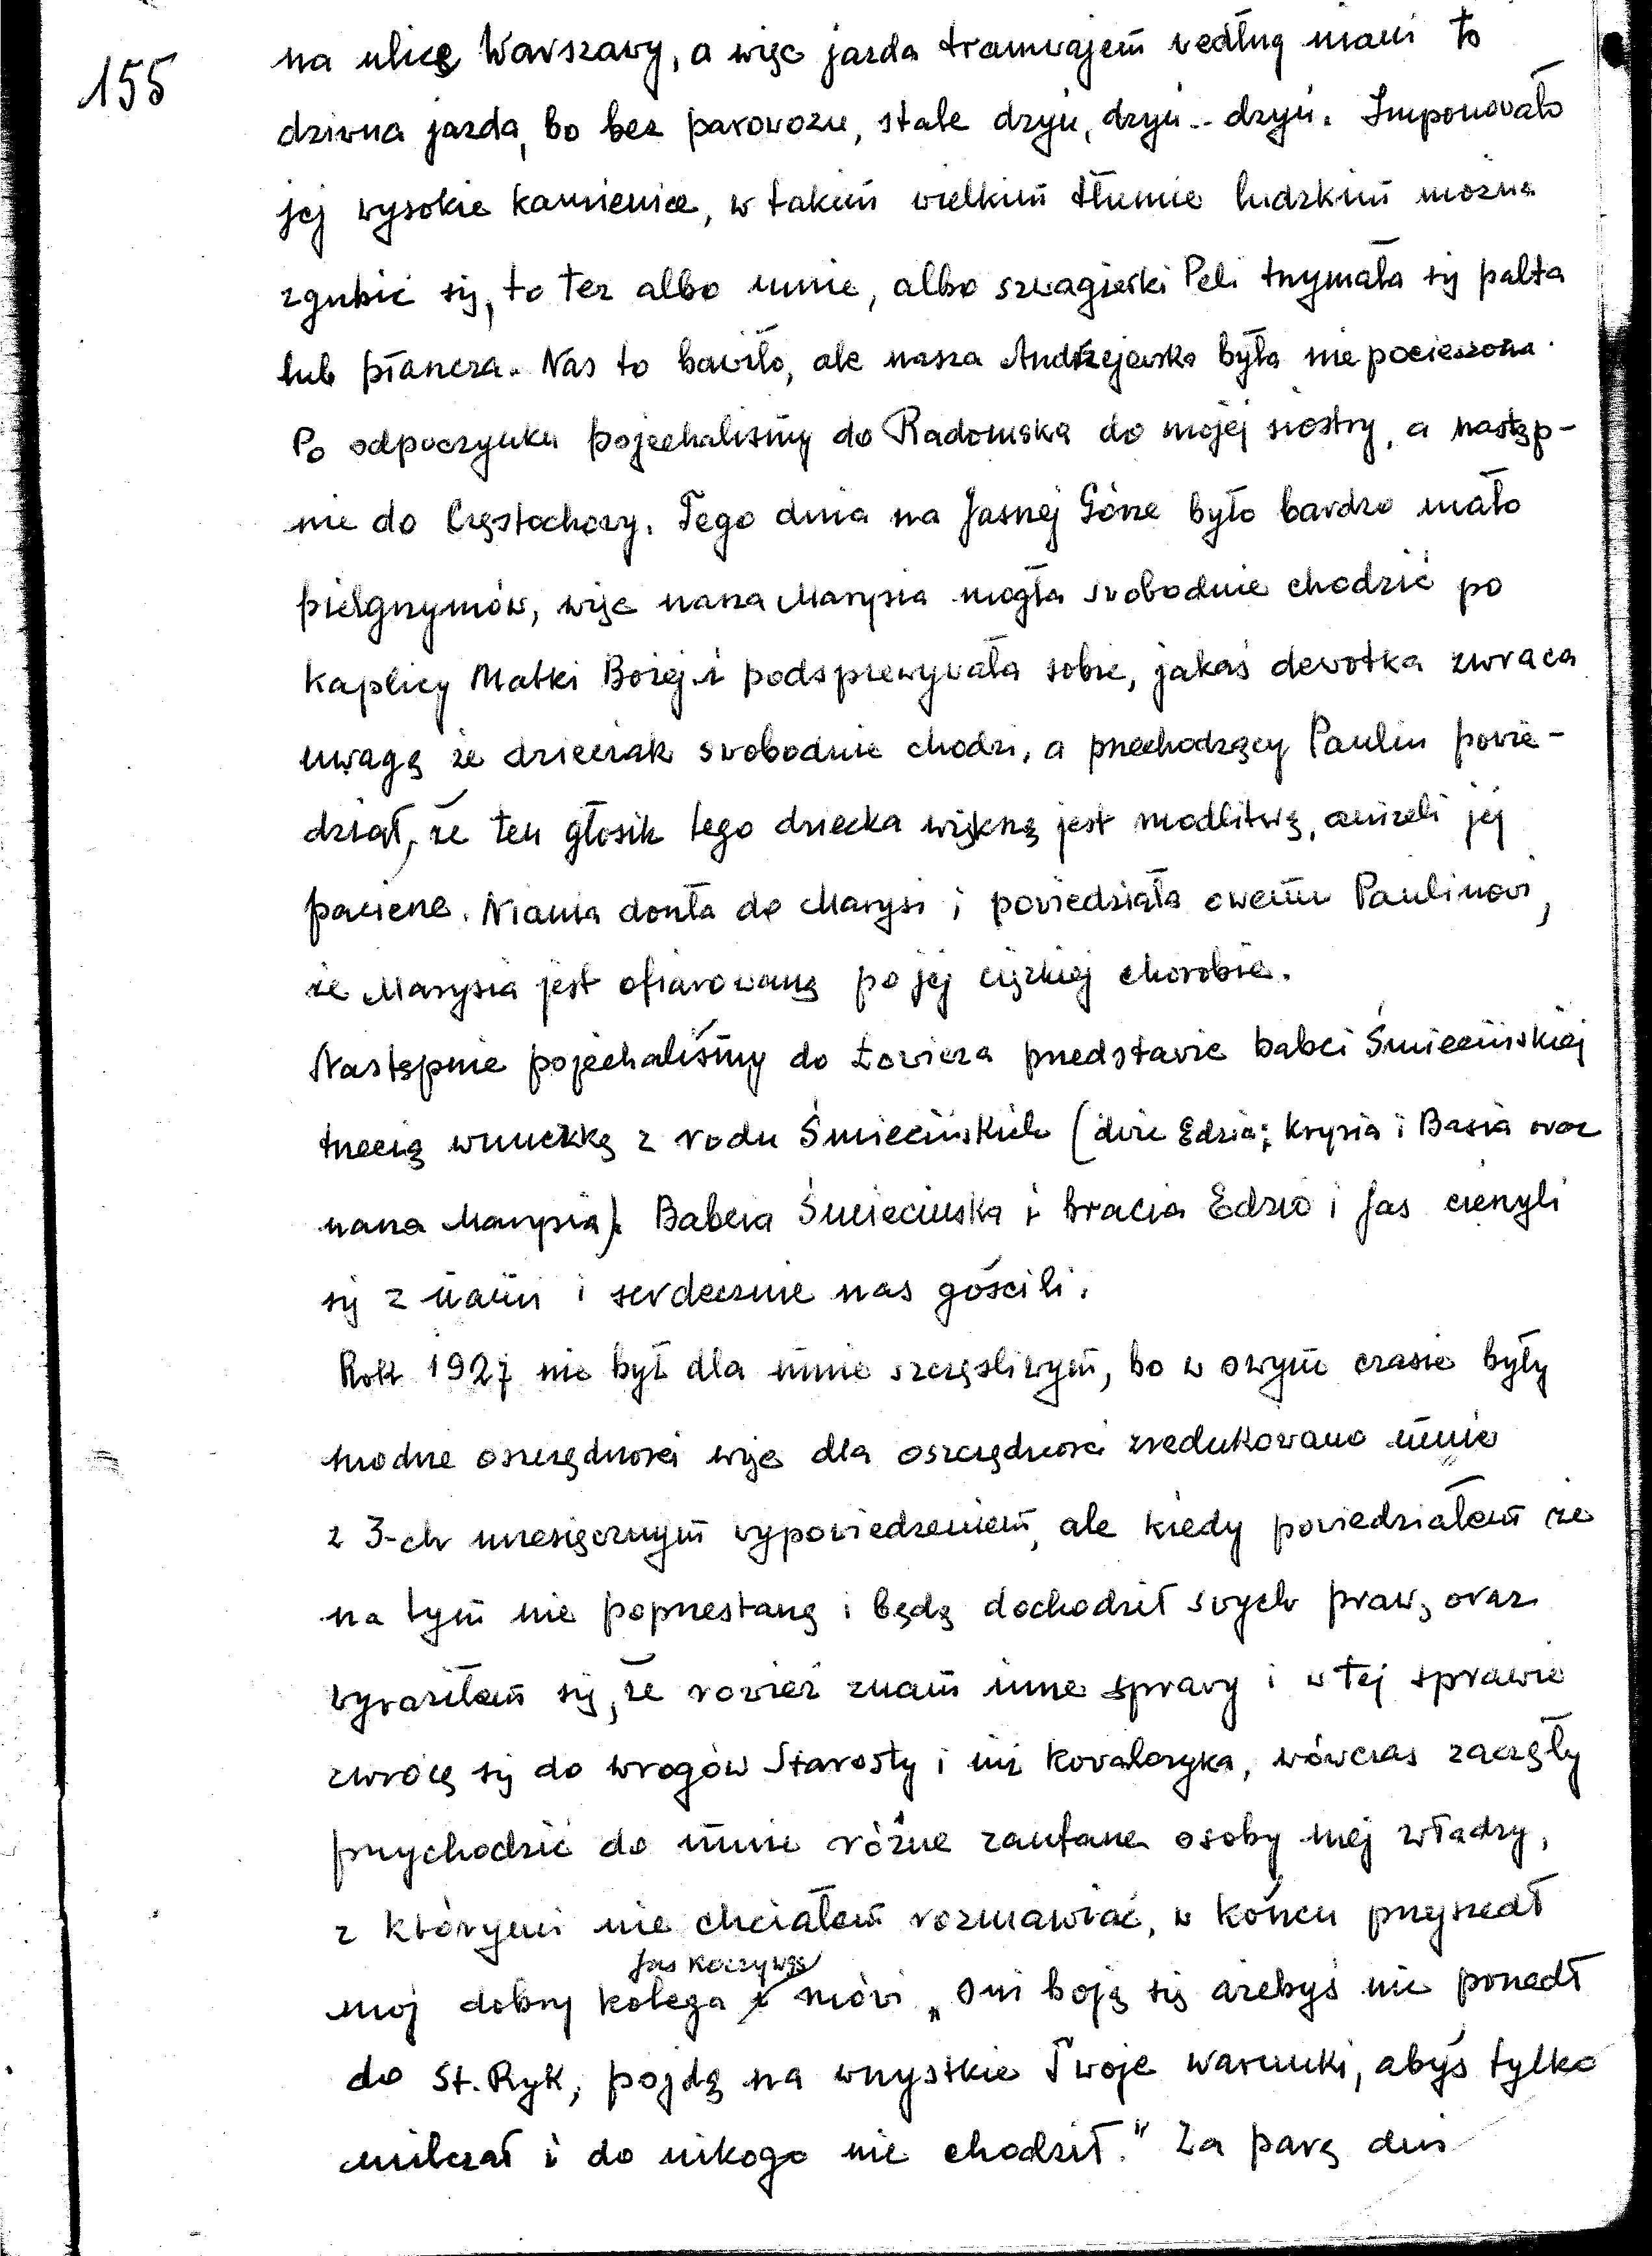 155
na ulicę Warszawy, a więc jazda tramwajem według niani to
dziwna jazda, bo bez parowozu, stale dzyń, dzyń.. dzyń. Imponowało
jej wysokie kamienice, w takim wielkim tłumie ludzkim można
zgubić się, to też albo mnie, albo szwagierki Peli trzymała się palta
lub płaszcza. Nas to bawiło, ale nasza Andrzejewska była niepocieszona.
Po odpoczynku pojechaliśmy do Radomska do mojej siostry, a następ-
nie do Częstochowy. Tego dnia na Jasnej Górze było bardzo mało
pielgrzymów, więc nasza Marysia mogła swobodnie chodzić po
kaplicy Matki Bożej i podśpiewywała sobie, jakaś dewotka zwraca
uwagę że dzieciak swobodnie chodzi, a przechodzący Paulin powie-
dział, że ten głosik tego dziecka większą jest modlitwą, aniżeli jej
pacierze. Niania doszła do Marysi i powiedziała owemu Paulinowi,
że Marysia jest ofiarowaną po jej ciężkiej chorobie.
Następnie pojechaliśmy do Łowicza przedstawić babci Śmiecińskiej
trzecią wnuczkę z rodu Śmiecińskich (dwie Edzia; Krysia i Basia oraz
nasza Marysia). Babcia Śmiecińska i bracia Edzio i Jaś cieszyli
się z nami i serdecznie nas gościli.
Rok 1927 nie był dla mnie szczęśliwym, bo w owym czasie były
modne oszczędności więc dla oszczędności zredukowano mnie
z 3-ch miesięcznym wypowiedzeniem, ale kiedy powiedziałem że
na tym nie poprzestanę i będę dochodził swych praw, oraz
wyraziłem się, że również znam inne sprawy i w tej sprawie
zwrócę się do wrogów Starosty i inż Kowalczyka, wówczas zaczęły
przychodzić do mnie różne zaufane osoby mej władzy,
z którymi nie chciałem rozmawiać, w końcu przyszedł
Jas
mój dobry kolega i mówi „Oni boją się ażebyś nie poszedł
do St. Ryk, pójdą na wszystkie Twoje warunki, abyś tylko
milczał i do nikogo nie chodził." Za parę dni